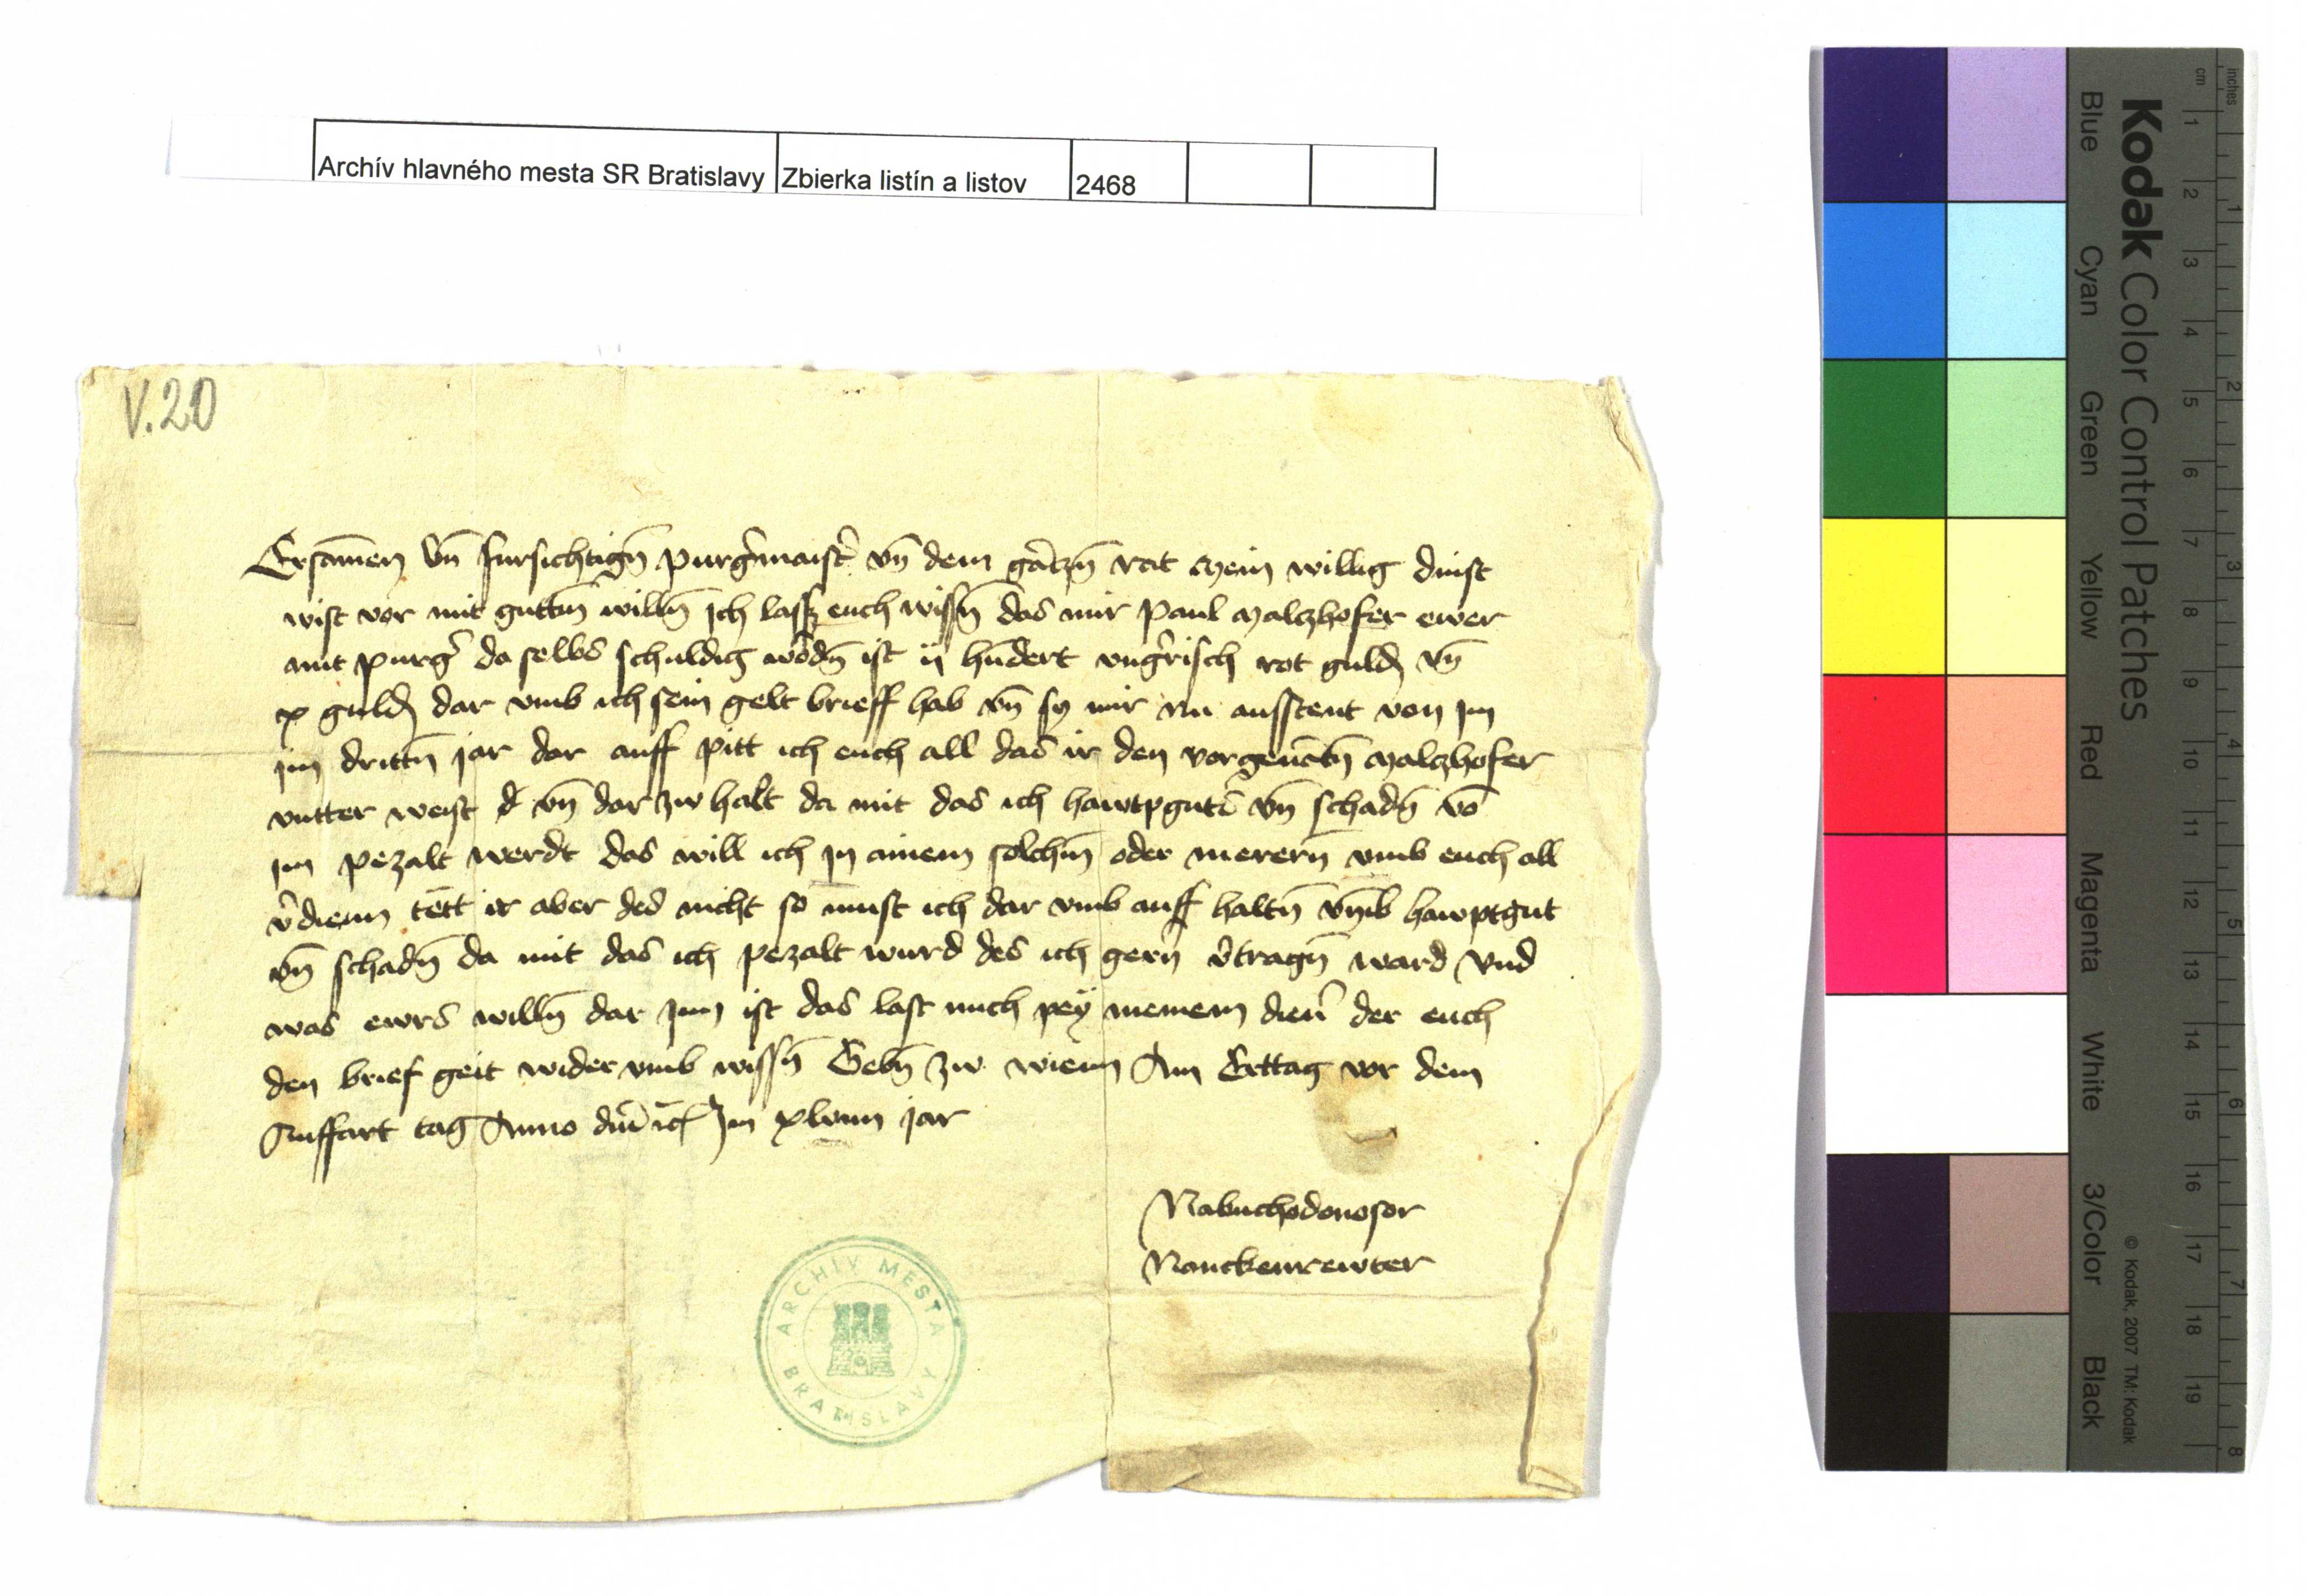 Archív hlavného mesta SR Bratislavy Zbierka listín a listov 2468
V.20
Ersamen vn̄ fursichtign̄ purgermaister vn̄ dem gantzn̄ rat Mein willig dinst
wist vor mit guttn̄ willn̄ Ich lass euch wissn̄ das mir Paul Malczhofer ewer
mit purger da selbs schuldig wordn̄ ist ij hundert vngrisch rot guldn̄ vn̄
x guldn̄ dar vmb ich sein gelt brieff hab vn̄ sy mir nu ausstent von im
im drittn̄ jar dar auff pitt ich euch all das ir den vorgenantn̄ Malczhofer
vntter weist vn̄ dar zw halt da mit das ich hawtpguts vn̄ schadn̄ vō
im pezalt werdt das will ich in ainem solchm̄ oder merern̄ vmb euch all
v̄dienn tett ir aber des nicht so must ich dar vmb auff haltn̄ vmb hawptgut
vn̄ schadn̄ da mit das ich pezalt wurd des ich gern v̄tragn̄ ward Vnd
was ewrs willn̄ dar Inn ist das last mich pey meinem dien̄ der euch
den brief geit wider vmb wissn̄ Gebn̄ zw wienn Am Erttag vor dem
Auffart tag Anno dm̄ Im xlviii jar
Nabuchodonosor
Nanckenrewter
ARCHÍV MESTA
BRATISLAVY
Kodak Color Control Patches
Blue Cyan Green Yellow Red Magenta White 3/Color Black
© Kodak, 2007 TM: Kodak
inches 1 2 3 4 5 6 7 8
cm 1 2 3 4 5 6 7 8 9 10 11 12 13 14 15 16 17 18 19